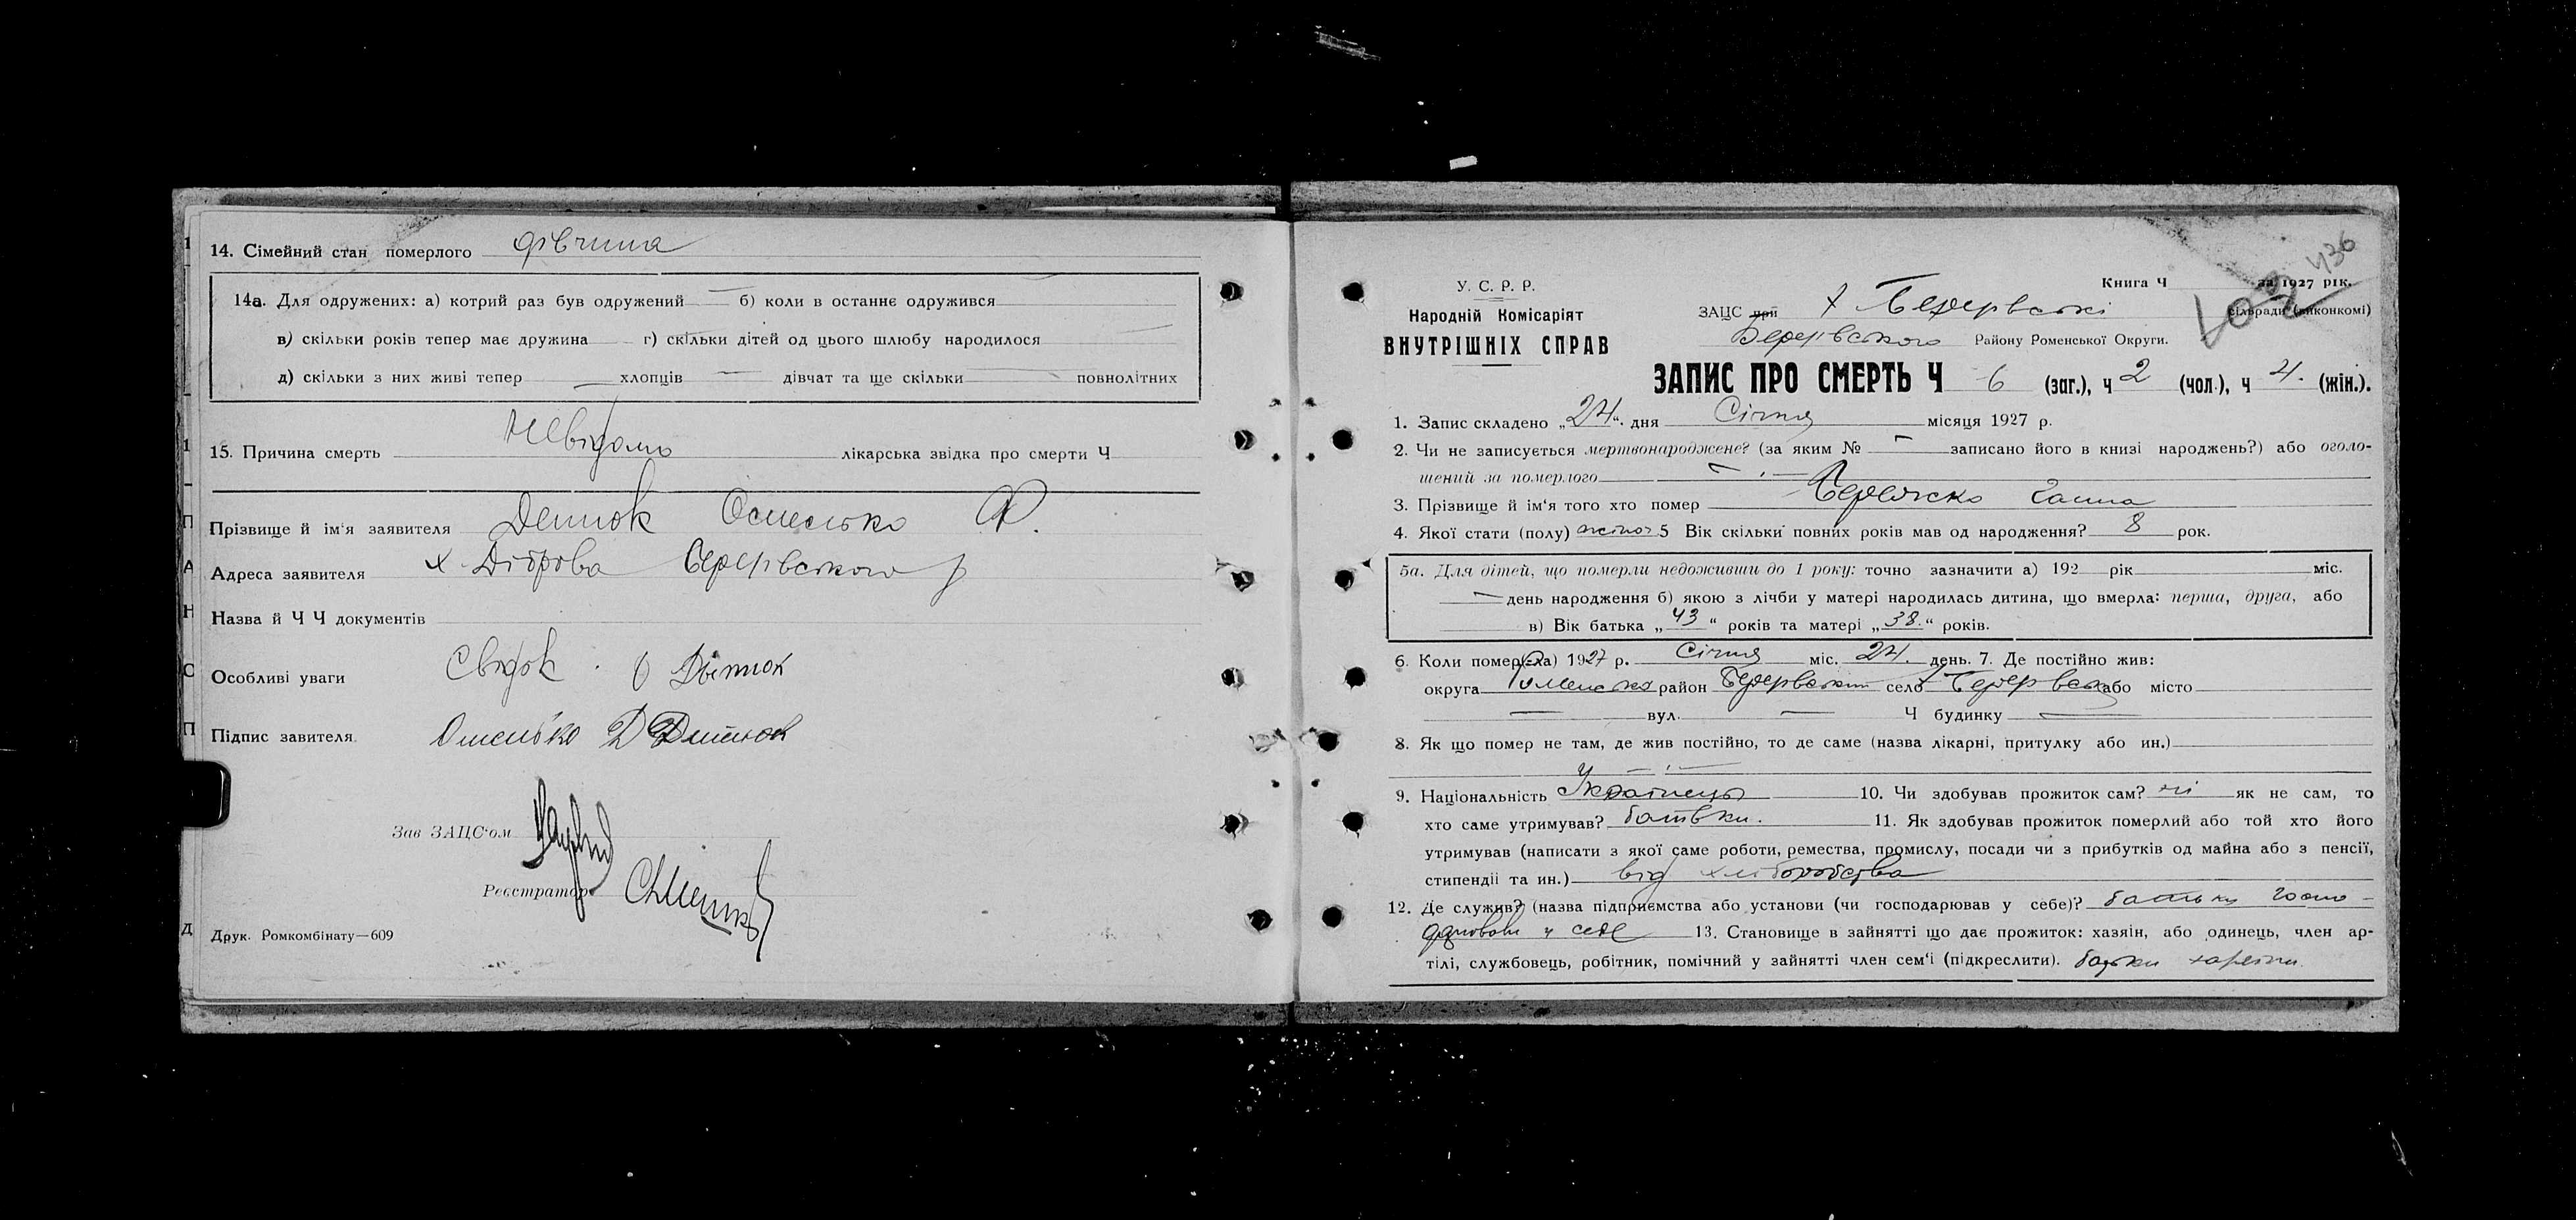 14. Сімейний стан померлого дівчина
14а. Для одружених: а) котрий раз був одружений — б) коли в останнє одружився
в) скільки років тепер має дружина г) скільки дітей од цього шлюбу народилося
д) скільки з них живі тепер — хлопців — дівчат та ще скільки — повнолітних
15. Причина смерть Невідомо лікарська звідка про смерти Ч
Прізвище й ім'я заявителя
Адреса заявителя х. Діброва
Назва й Ч Ч документів
Особливі уваги Свідок
Підпис завителя
Зав ЗАЦС'ом
Реєстратор
Друк. Ромкомбінату—609
436
У. С. Р. Р.
Народній Комісаріят
ВНУТРІШНІХ СПРАВ
Книга Ч за 1927 рік.
ЗАЦС при х сільради (виконкомі)
Району Роменської Округи.
ЗАПИС ПРО СМЕРТЬ Ч 6 (заг.), ч 2 (чол.), ч 4. (жін.).
1. Запис складено „24". дня Січня місяця 1927 р.
2. Чи не записується мертвонароджене? (за яким № — записано його в книзі народжень?) або оголо-
шений за померлого
3. Прізвище й ім'я того хто помер Ганна
4. Якої стати (полу) жіноч 5 Вік скільки повних років мав од народження? 8 рок.
5а. Для дітей, що померли недоживши до 1 року: точно зазначити а) 192 рік міс.
— день народження б) якою з лічби у матері народилась дитина, що вмерла: перша, друга, або
в) Вік батька „43" років та матері „38." років.
6. Коли помер(ла) 1927 р. Січня міс. 24. день. 7. Де постійно жив:
округа Роменська район село або місто
— вул. — Ч будинку —
8. Як що помер не там, де жив постійно, то де саме (назва лікарні, притулку або ин.)
9. Національність Українець 10. Чи здобував прожиток сам? ні як не сам, то
хто саме утримував? батьки. 11. Як здобував прожиток померлий або той хто його
утримував (написати з якої саме роботи, ремества, промислу, посади чи з прибутків од майна або з пенсії,
стипендії та ин.) від хліборобства
12. Де служив? (назва підприємства або установи (чи господарював у себе)? батьки госпо-
дарювали у себе 13. Становище в зайнятті що дає прожиток: хазяін, або одинець, член ар-
тілі, службовець, робітник, помічний у зайнятті член сем'і (підкреслити). батьки хазяїни